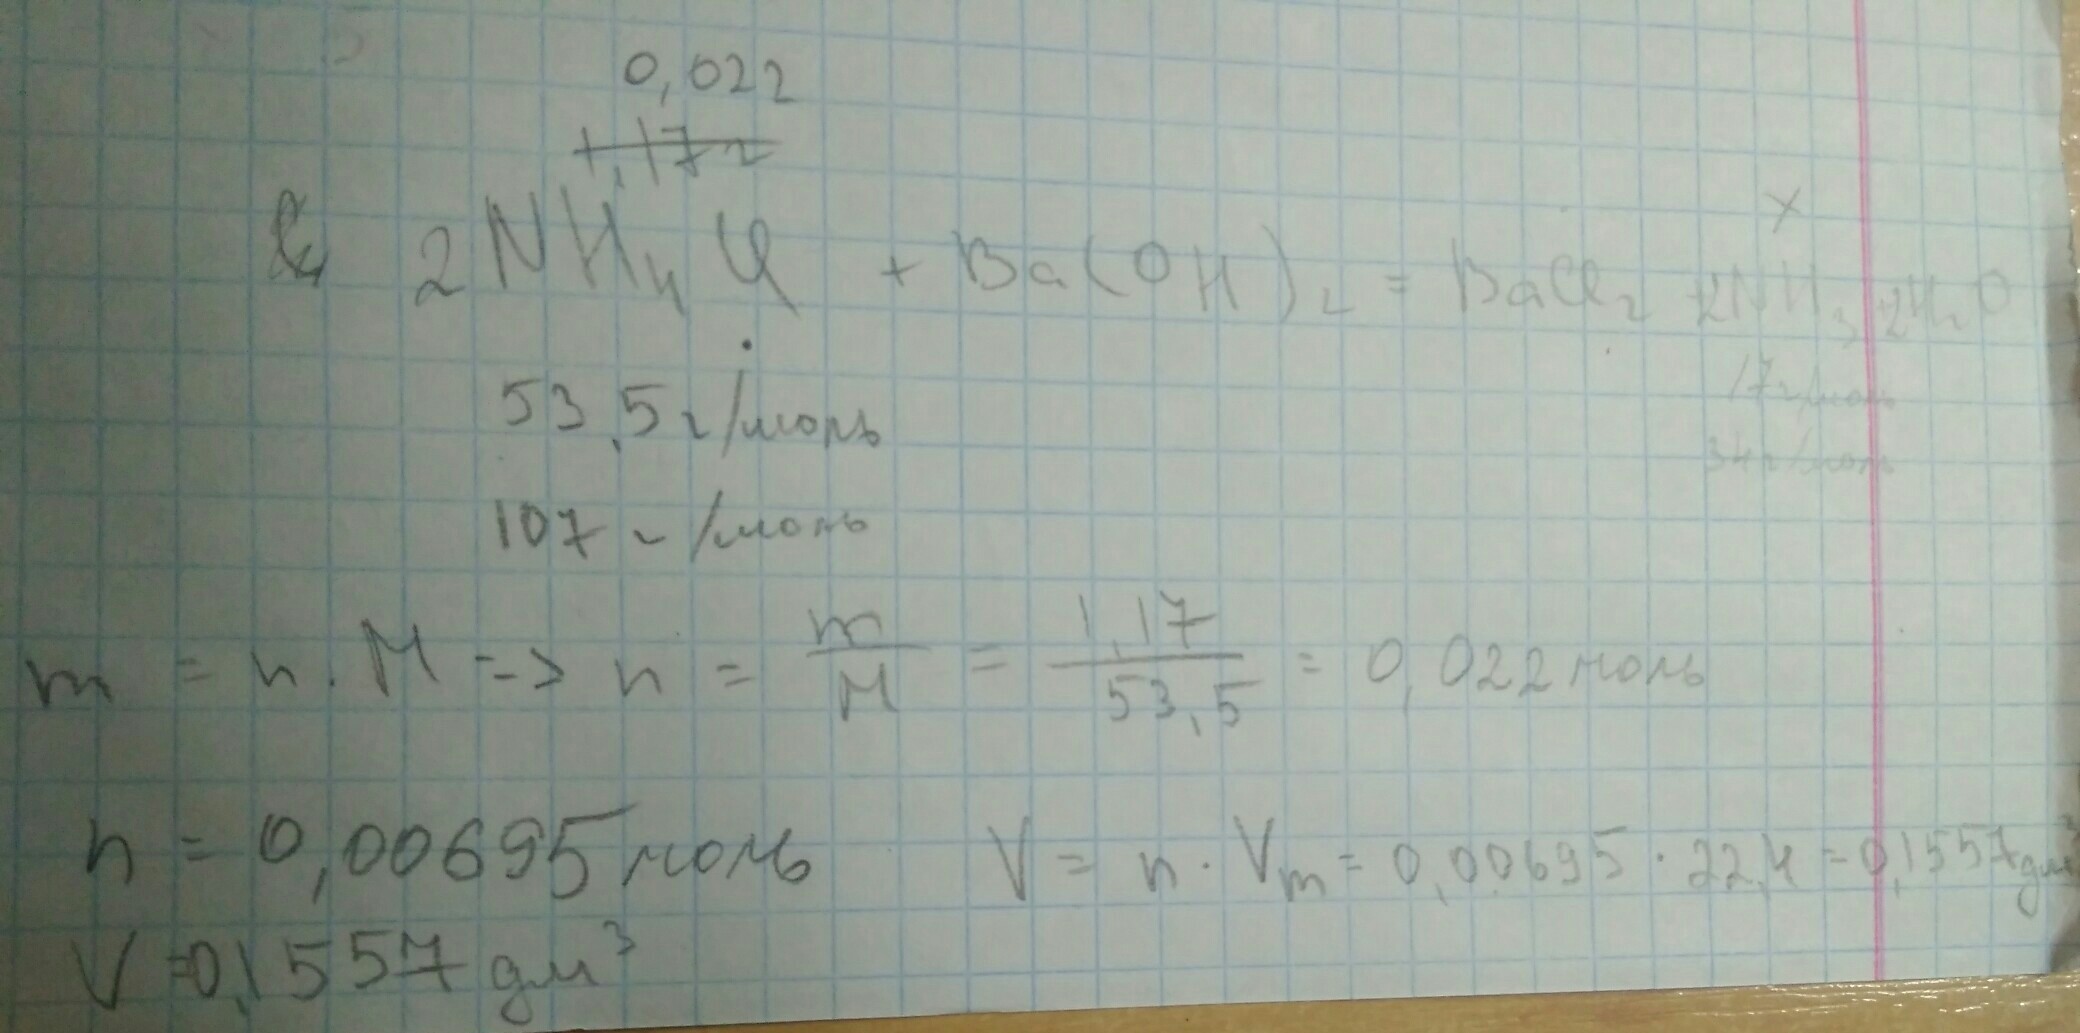 0,022
1,17 г
2NH4Cl + Ba(OH)2 = BaCl2 + 2NH3 + 2H2O
x
53,5 г/моль
17 г/моль
107 г/моль
34 г/моль
m = n · M => n = m/M = 1,17/53,5 = 0,022 моль
n = 0,00695 моль V = n · Vm = 0,00695 · 22,4 = 0,1557 дм³
V = 0,1557 дм³